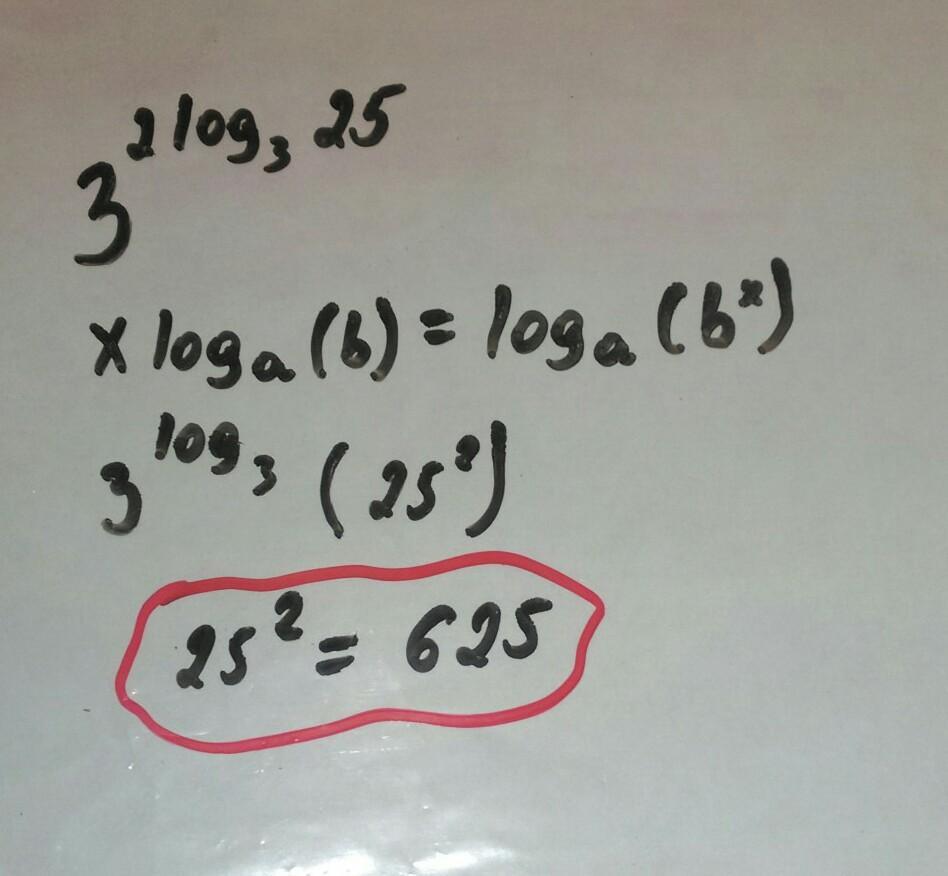 3^{2 log₃ 25}
x logₐ (b) = logₐ (bˣ)
3^{log₃ (25²)}
25² = 625